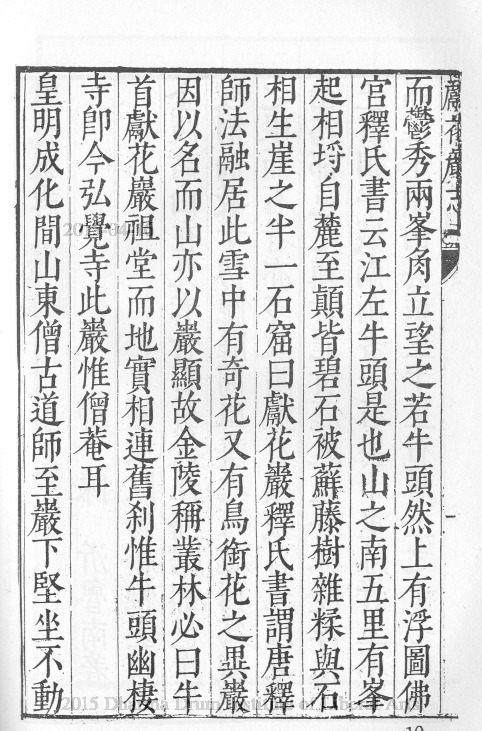 獻花巖志
而鬱秀兩峯角立望之若牛頭然上有浮圖佛
宮釋氏書云江左牛頭是也山之南五里有峯
起相埒自麓至顛皆碧石被蘚藤樹雜糅與石
相生崖之半一石窟曰獻花巖釋氏書謂唐釋
師法融居此雪中有奇花又有鳥銜花之異巖
因以名而山亦以巖顯故金陵稱叢林必曰牛
首獻花巖祖堂而地實相連舊刹惟牛頭幽棲
寺卽今弘覺寺此巖惟僧菴耳
皇明成化間山東僧古道師至巖下堅坐不動